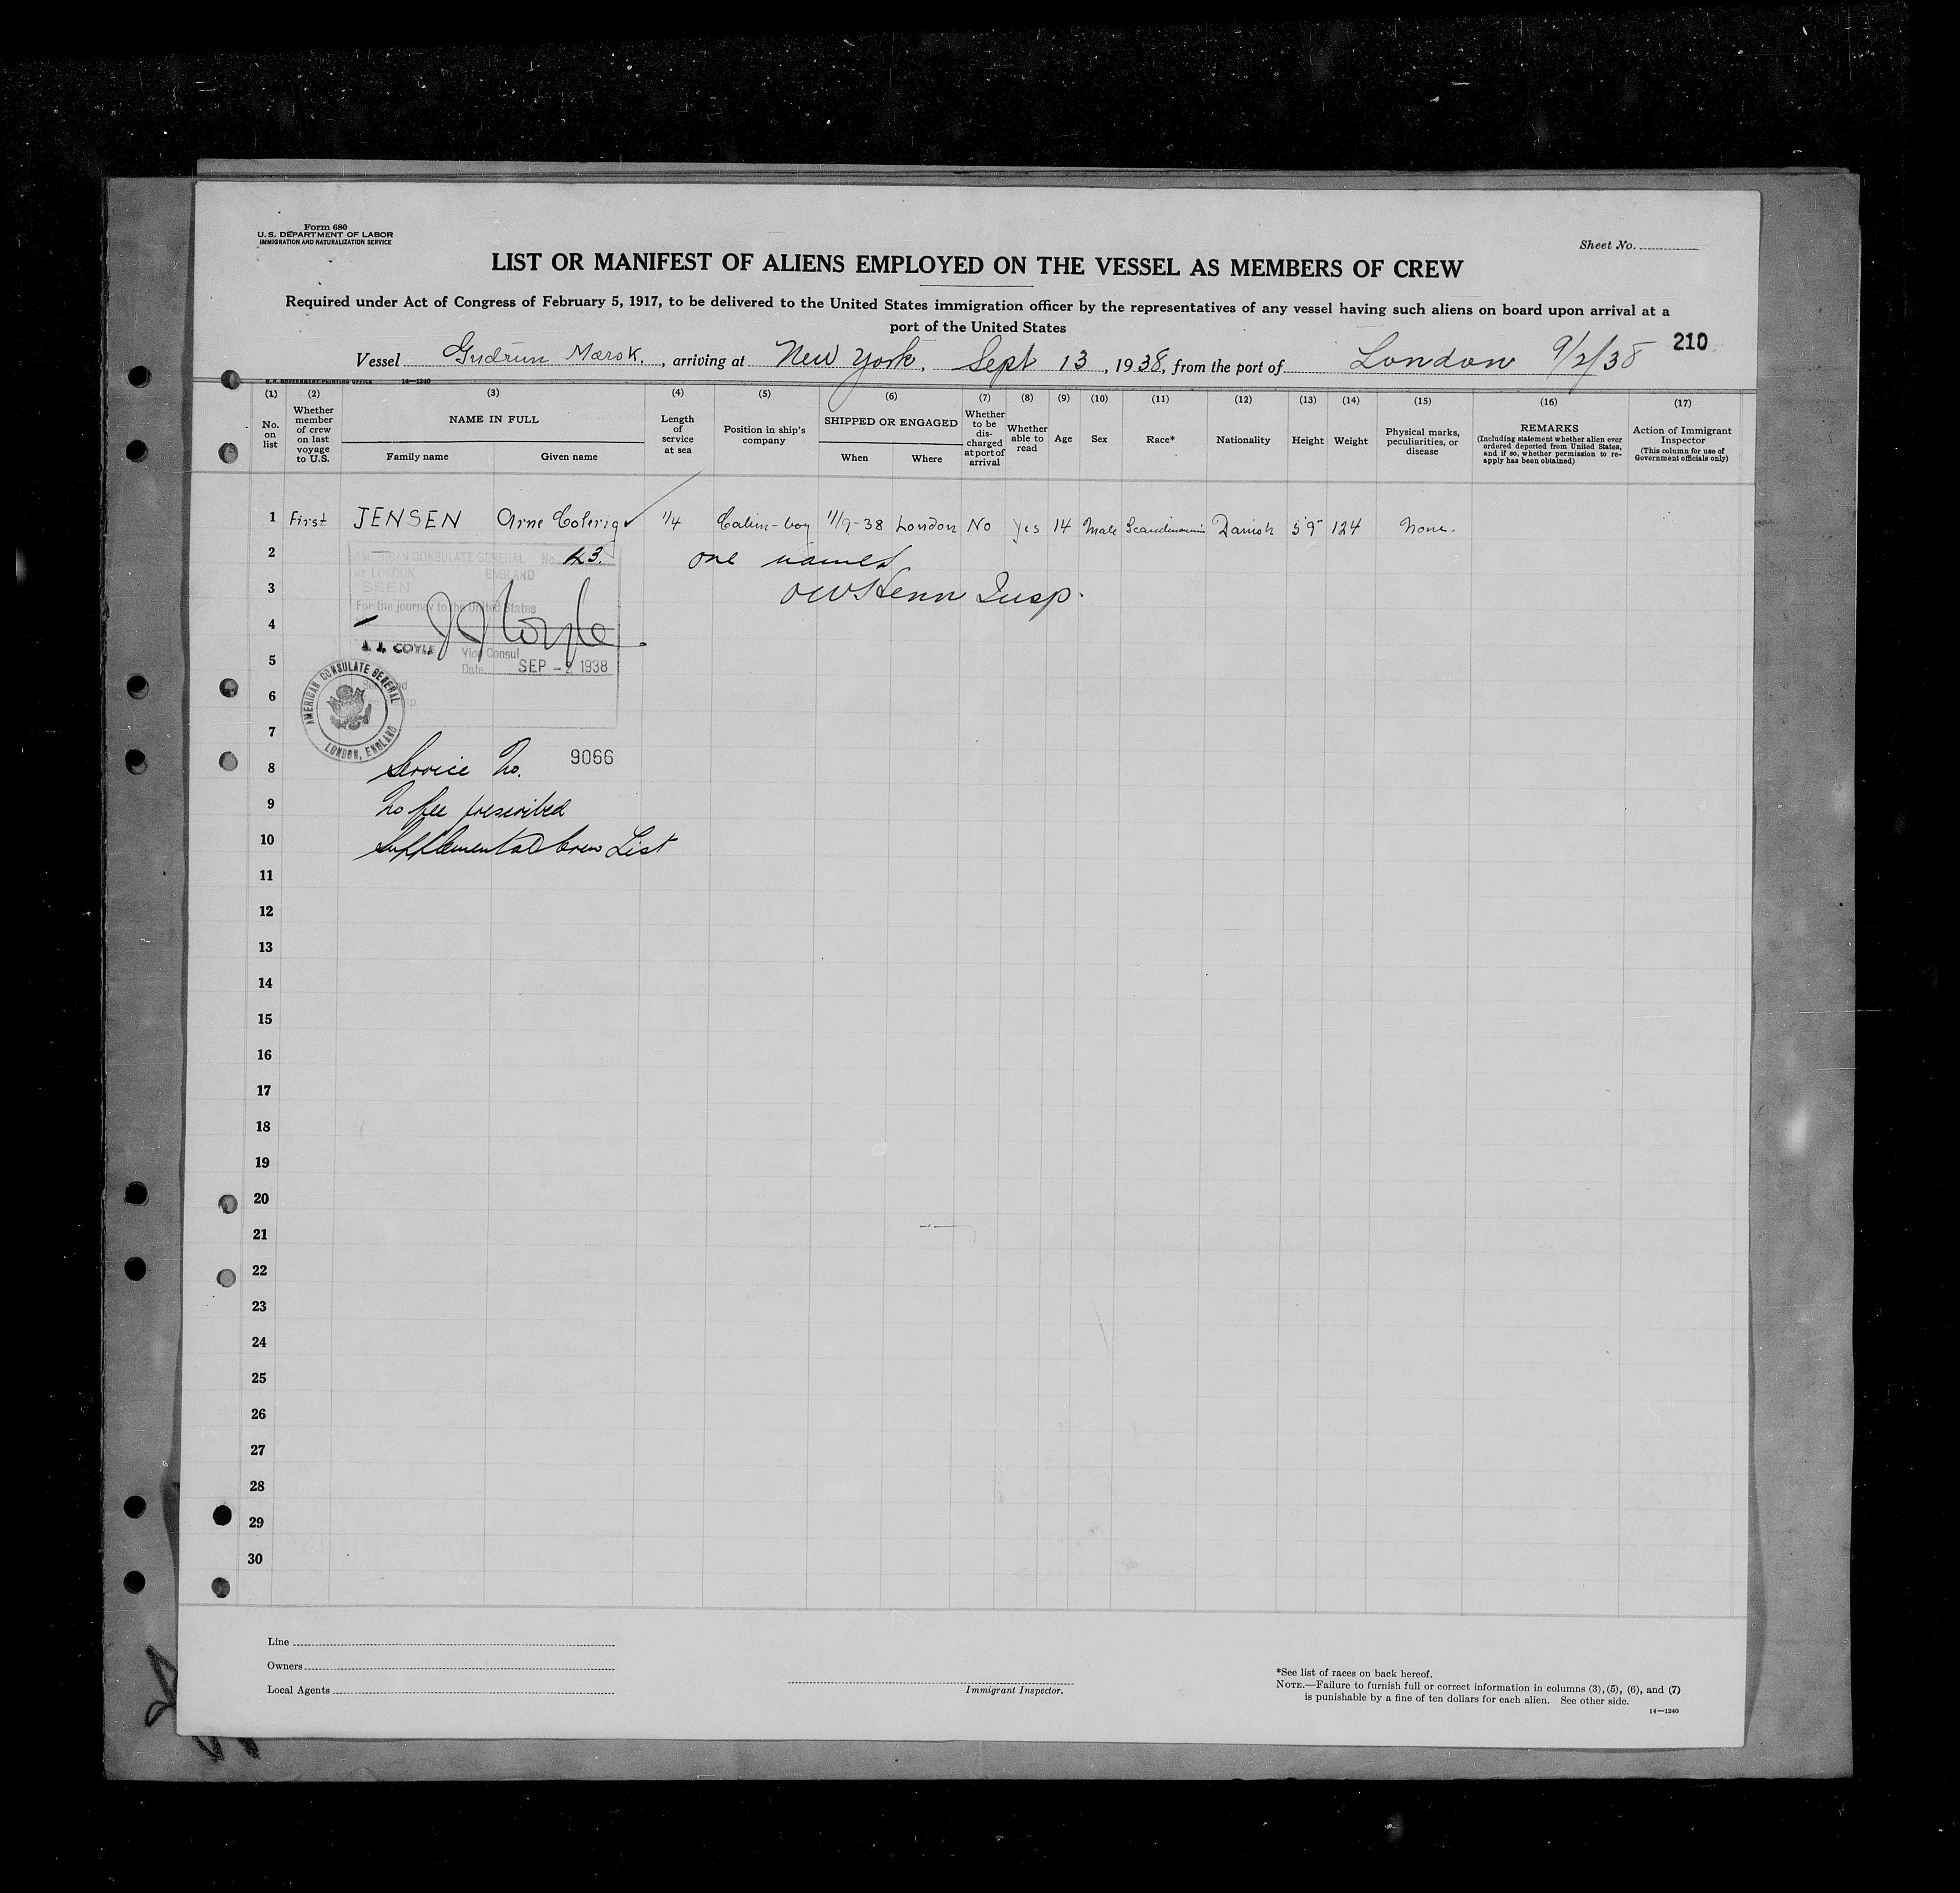 Form 680
U. S. DEPARTMENT OF LABOR
IMMIGRATION AND NATURALIZATION SERVICE
Sheet No.
LIST OR MANIFEST OF ALIENS EMPLOYED ON THE VESSEL AS MEMBERS OF CREW
Required under Act of Congress of February 5, 1917, to be delivered to the United States immigration officer by the representatives of any vessel having such aliens on board upon arrival at a
port of the United States
210
Vessel Gudrun Mærsk, arriving at New York, Sept 13, 1938, from the port of London 9/2/38
U. S. GOVERNMENT PRINTING OFFICE 14—1240
(1) (2) (3) (4) (5) (6) (7) (8) (9) (10) (11) (12) (13) (14) (15) (16) (17)
No. on list
Whether member of crew on last voyage to U.S.
NAME IN FULL
Family name
Given name
Length of service at sea
Position in ship's company
SHIPPED OR ENGAGED
When
Where
Whether to be dis-charged at port of arrival
Whether able to read
Age
Sex
Race*
Nationality
Height
Weight
Physical marks, peculiarities, or disease
REMARKS
(Including statement whether alien ever ordered deported from United States, and if so, whether permission to re-apply has been obtained)
Action of Immigrant Inspector
(This column for use of Government officials only)
1 First JENSEN Arne 1/4 Cabin-boy 1/9-38 London No Yes 14 Male Scandinavian Danish 5'9" 124 None.
2
AMERICAN CONSULATE GENERAL No. 43.
one names
at LONDON ENGLAND
3
SEEN
Insp.
For the journey to the United States
4
J. J. COYLE
Vice Consul
5
Date SEP - 2 1938
6
AMERICAN CONSULATE GENERAL
LONDON, ENGLAND
7
8 Service No. 9066
9 No fee prescribed
10 Supplemental Crew List
11
12
13
14
15
16
17
18
19
20
21
22
23
24
25
26
27
28
29
30
Line
Owners
Local Agents
Immigrant Inspector.
*See list of races on back hereof.
NOTE.—Failure to furnish full or correct information in columns (3), (5), (6), and (7)
is punishable by a fine of ten dollars for each alien. See other side.
14—1240